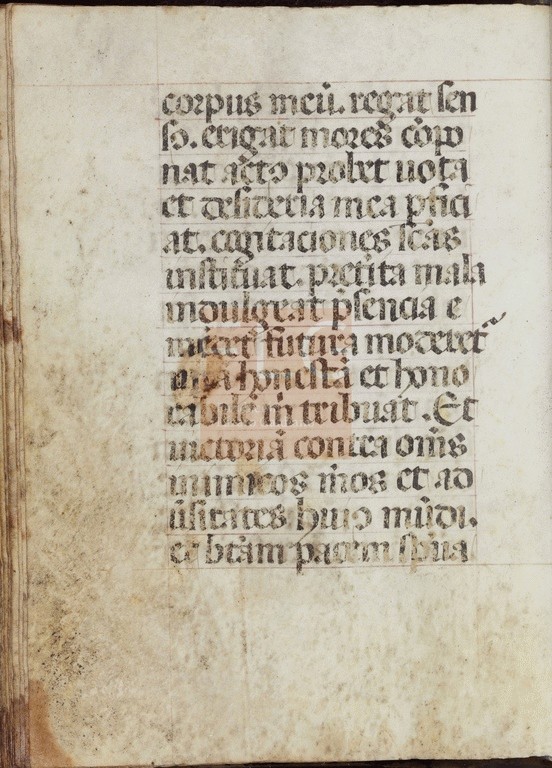 corpus meū. regat sen
so. erigat mores cōpo
nat acto probet uota
et desideria mea ꝑfici
at. cogitaciones scās
instituat. preteita mala
indulgeat p̄sencia e
mēdet futura moderet
honestā et hono
rabilē m̄ tribuat. Et
uictoriā contra om̄s
inimicos m̄os et ad
ūsitates huiꝯ mūdi.
et btām pacem sp̄ua